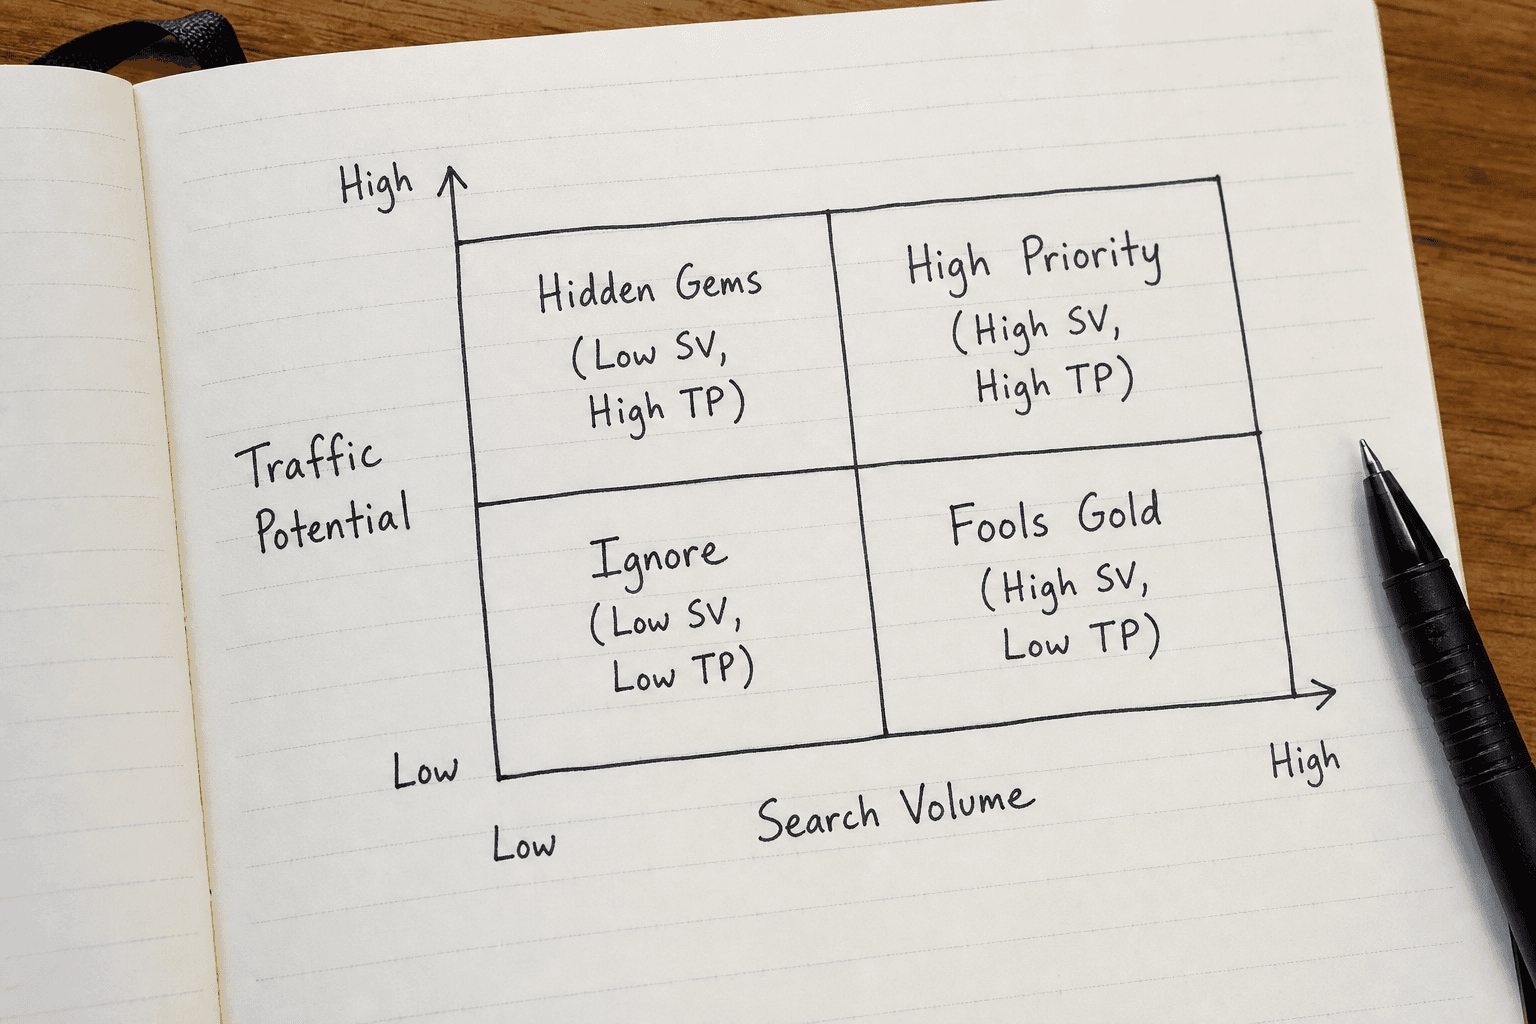 High
Hidden Gems
(Low SV,
High TP)
High Priority
(High SV,
High TP)
Traffic
Potential
Ignore
(Low SV,
Low TP)
Fools Gold
(High SV,
Low TP)
Low
Low
Search Volume
High